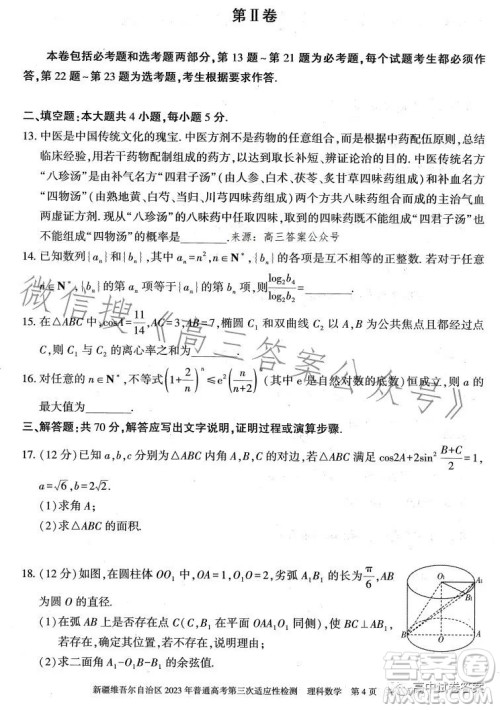 第Ⅱ卷
本卷包括必考题和选考题两部分,第 13 题~第 21 题为必考题,每个试题考生都必须作
答,第 22 题~第 23 题为选考题,考生根据要求作答.
二、填空题:本大题共 4 小题,每小题 5 分.
13. 中医是中国传统文化的瑰宝. 中医方剂不是药物的任意组合,而是根据中药配伍原则,总结
临床经验,用若干药物配制组成的药方,以达到取长补短、辨证论治的目的. 中医传统名方
“八珍汤”是由补气名方“四君子汤”(由人参、白术、茯苓、炙甘草四味药组成)和补血名方
“四物汤”(由熟地黄、白芍、当归、川芎四味药组成)两个方共八味药组合而成的主治气血
两虚证方剂. 现从“八珍汤”的八味药中任取四味,取到的四味药既不能组成“四君子汤”也
不能组成“四物汤”的概率是________. 来源:高三答案公众号
14. 已知数列{aₙ}和{bₙ},其中 aₙ=n²,n∈N*,{bₙ}的各项是互不相等的正整数. 若对于任意
n∈N*,{bₙ}的第 aₙ 项等于{aₙ}的第 bₙ 项,则 log₂b₄/log₂b₂=________.
15. 在△ABC 中,cosA=11/14,AC=3,AB=7,椭圆 C₁ 和双曲线 C₂ 以 A,B 为公共焦点且都经过点
C,则 C₁ 与 C₂ 的离心率之和为________.
16. 对任意的 n∈N*,不等式(1+2/n)ⁿ≤e²(n/(n+2))ᵃ(其中 e 是自然对数的底数)恒成立,则 a 的
最大值为________.
三、解答题:共 70 分,解答应写出文字说明,证明过程或演算步骤.
17. (12 分)已知 a,b,c 分别为△ABC 内角 A,B,C 的对边,若△ABC 满足 cos2A+2sin²(B+C)/2=1,
a=√6,b=2√2.
(1)求角 A;
(2)求△ABC 的面积.
18. (12 分)如图,在圆柱体 OO₁ 中,OA=1,OO₁=2,劣弧 A₁B₁ 的长为 π/6,AB 为
圆 O 的直径.
(1)在弧 AB 上是否存在点 C(C,B₁ 在平面 OAA₁O₁ 的同侧),使 BC⊥AB₁,
若存在,确定其位置,若不存在,说明理由;
(2)求二面角 A₁-O₁B-B₁ 的余弦值.
O₁
A₁
B₁
O
A
B
新疆维吾尔自治区 2023 年普通高考第三次适应性检测 理科数学 第 4 页
微信搜《高三答案公众号》
高中试卷答案